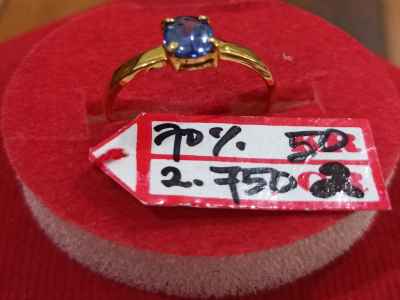 70% 50
2.750